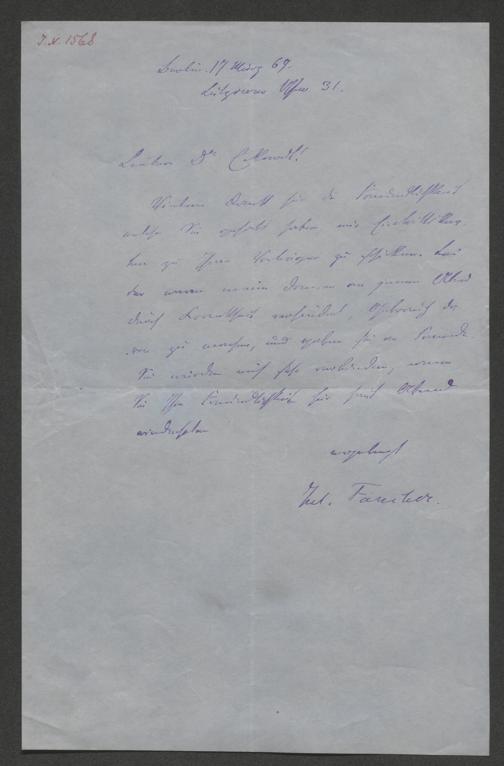 I.N. 1568
Berlin 17 März 69.
Lützower Ufer 31.
Lieber Dr Eckardt!
Vielen Dank für die Freundlichkeit
welche Sie gehabt haben mir Eintrittskar
ten zu Ihren Vorträgen zu schicken. Lei
der waren meine Damen an jenem Abend
durch Krankheit verhindert, Gebrauch da
von zu machen, und gaben sie an Freunde
Sie würden mich sehr verbinden, wenn
Sie Ihre Freundlichkeit für heut Abend
wiederholen
ergebenst
Jul. Faucher.